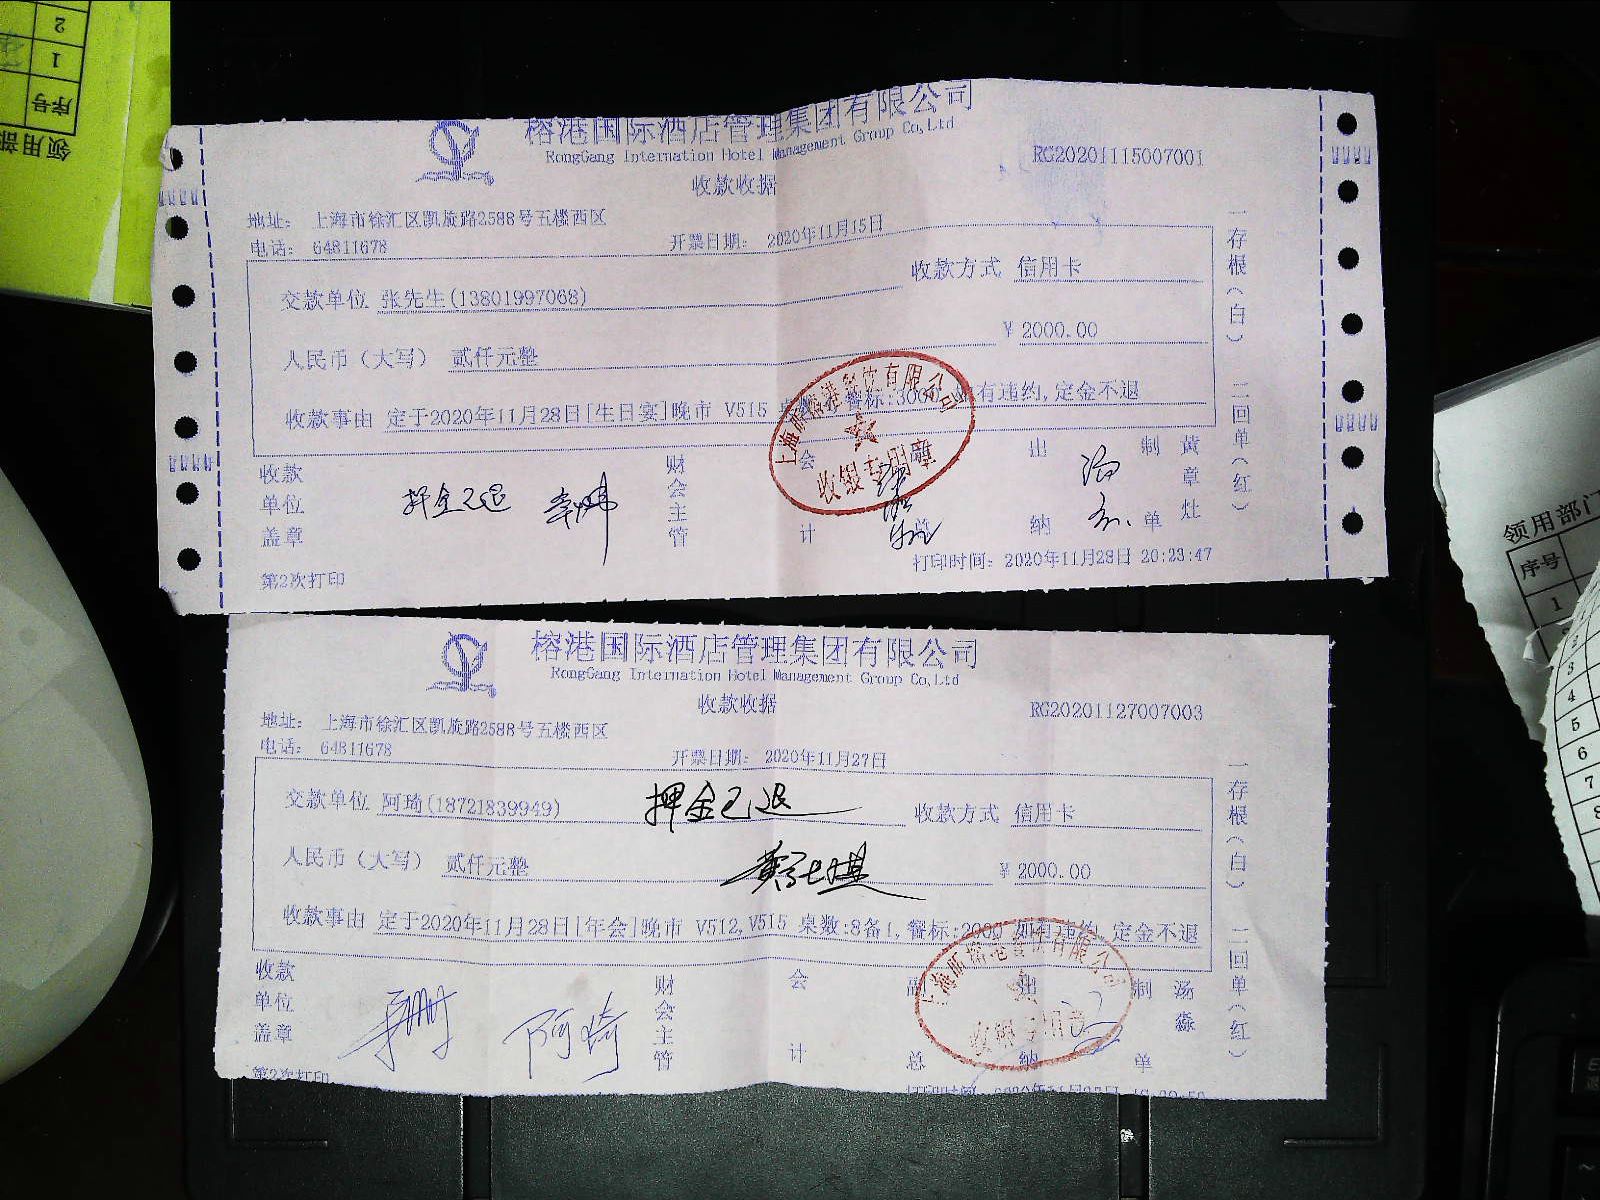 榕港国际酒店管理集团有限公司
RongGang Internation Hotel Management Group Co,Ltd
收款收据
RG20201115007001
地址： 上海市徐汇区凯旋路2588号五楼西区
电话： 64811678
开票日期： 2020年11月15日
交款单位 张先生(13801997068)
收款方式 信用卡
人民币（大写） 贰仟元整
¥ 2000.00
收款事由 定于2020年11月28日[生日宴]晚市 V515 餐标:3000 有违约,定金不退
一存根（白） 二回单（红）
上海 榕港餐饮有限公司
收银专用章
收款单位盖章
押金已退
财会主管
会计
出纳
制单
黄章灶
第2次打印
打印时间： 2020年11月28日 20:23:47
榕港国际酒店管理集团有限公司
RongGang Internation Hotel Management Group Co,Ltd
收款收据
RG20201127007003
地址： 上海市徐汇区凯旋路2588号五楼西区
电话： 64811678
开票日期： 2020年11月27日
交款单位 阿琦(18721839949)
押金已退
收款方式 信用卡
人民币（大写） 贰仟元整
¥ 2000.00
收款事由 定于2020年11月28日[年会]晚市 V512,V515 桌数:8备1,餐标:2000 如有违约 定金不退
一存根（白） 二回单（红）
上海 榕港餐饮有限公司
收银专用章
收款单位盖章
阿琦
财会主管
会计
副总
出纳
制单
汤淼
第2次打印
领用部
序号
1
2
领用部门
序号
1
2
3
4
5
6
7
8